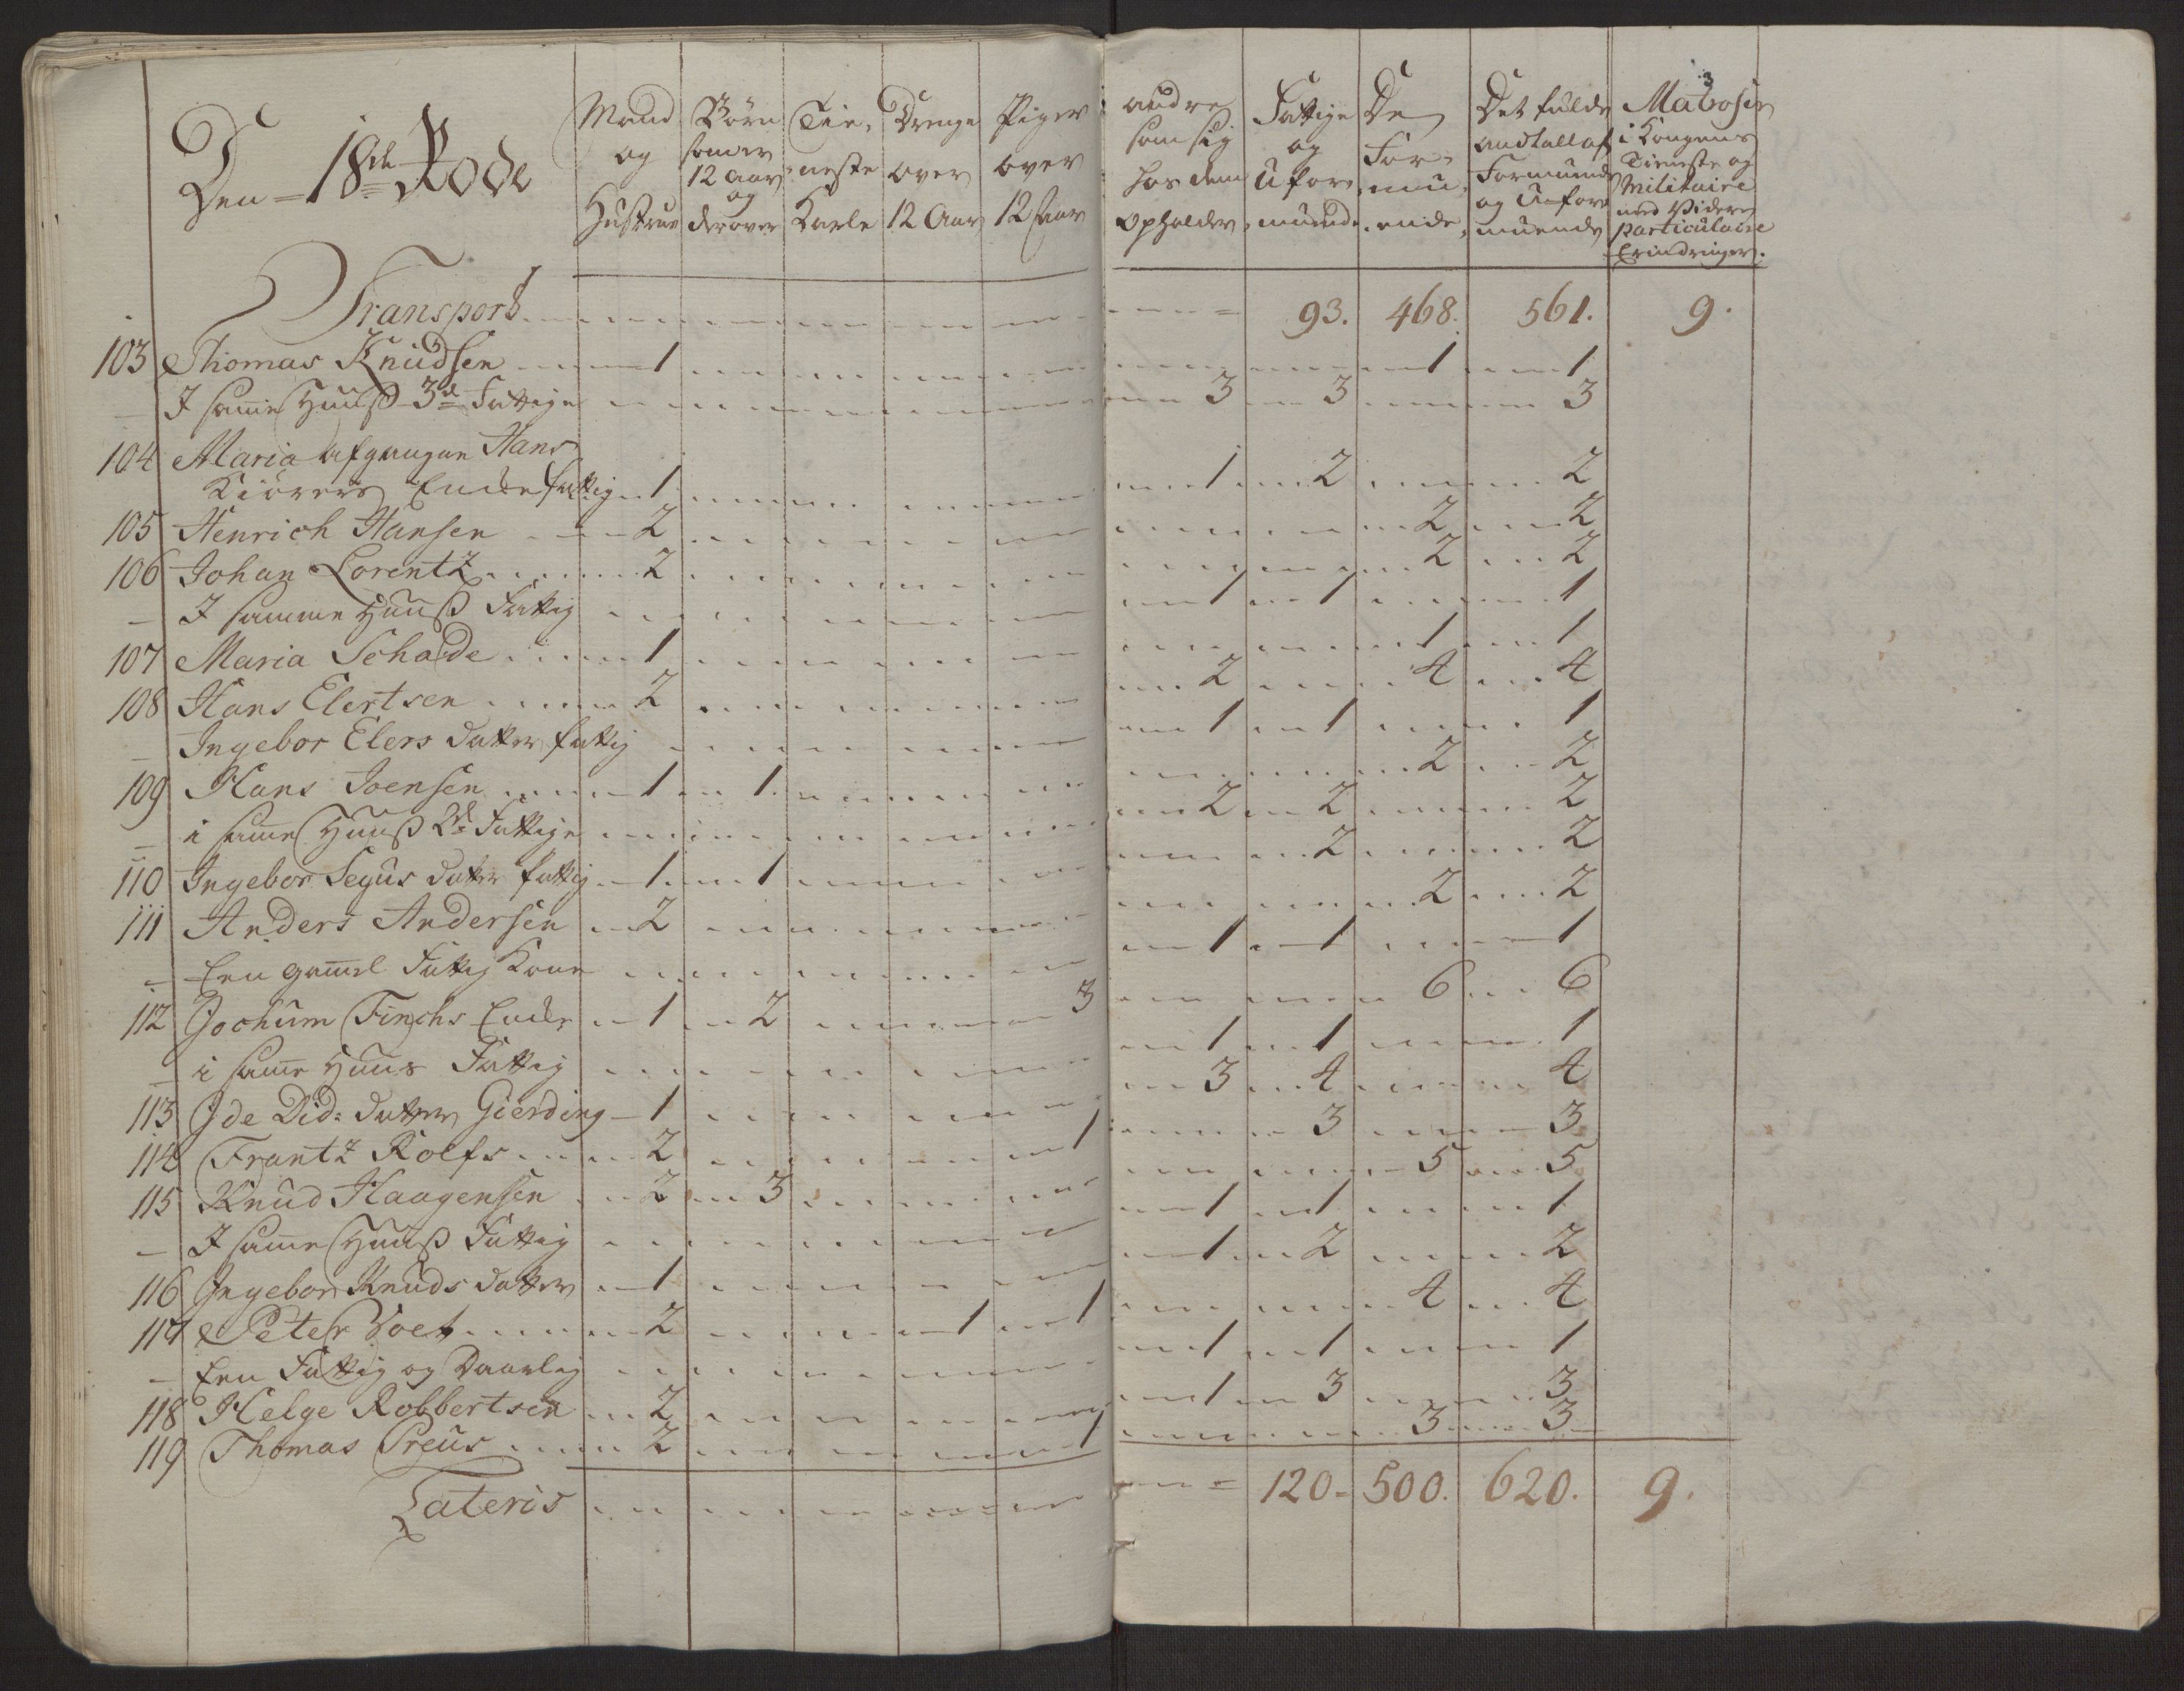 Den 18de Rode
Mand og Hustrue
Børn som er 12 Aar og derover
Tieneste Karle
Drenge over 12 Aar
Piger over 12 Aar
andre som sig hos dem opholder
Fattige og Uformuende
De Formuende
Det fulde andtall af Formuende og Uformuende
Matroser i Kongens Tieneste og Militaire med Videre particulaire Erindringer.
Transport 93. 468. 561. 9.
103 Thomas Knudsen 1 1 1
I same Huus 3de Fattige 3 3 3
104 Maria afgangne Hans
Kiörers Encke fattig 1 1 2 2
105 Henrich Hansen 2 2 2
106 Johan Lorentz 2 2 2
I samme Huus Fattig 1 1 1
107 Maria Schade 1 1 1
108 Hans Elertsen 2 2 4 4
Ingebor Elers datter fattig 1 1 1
109 Hans Joensen 1 1 2 2
i same Huus 2de Fattige 2 2 2
110 Ingebor Segus datter fattig 1 1 2 2
111 Anders Andersen 2 2 2
Een gamel Fattig Kone 1 1 1
112 Jochum Finchs Encke 1 2 3 6 6
i same Huus Fattig 1 1 1
113 Ide Did: datter Gierding 1 3 4 4
114 Frantz Rolfs 2 1 3 3
115 Knud Haagensen 2 3 5 5
I same Huus Fattig 1 1 1
116 Ingebor Knuds datter 1 1 2 2
117 Peter Voet 2 1 1 4 4
Een Fattig og Daarlig 1 1 1
118 Helge Robbertsen 2 1 3 3
119 Thomas Preus 2 1 3 3
Lateris 120 500. 620. 9.